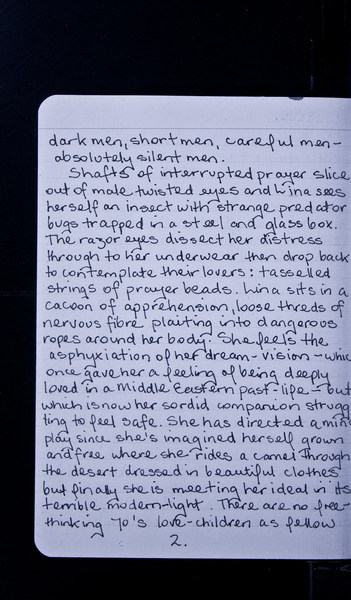 dark men, short men, careful men-
absolutely silent men.
Shafts of interrupted prayer slice
out of male twisted eyes and Lina sees
herself an insect with strange predator
bugs trapped in a steel and glass box.
The razor eyes dissect her distress
through to her underwear then drop back
to contemplate their lovers: tasselled
strings of prayer beads. Lina sits in a
cacoon of apprehension, loose threds of
nervous fibre plaiting into dangerous
ropes around her body. She feels the
asphyxiation of her dream-vision-whic
once gave her a feeling of being deeply
loved in a Middle Eastern past-life-but
which is now her sordid companion strugg
ting to feel safe. She has directed a mini
play since she's imagined herself grown
and free where she rides a camel through
the desert dressed in beautiful clothes
but finally she is meeting her ideal in its
terrible modern-light. There are no free-
thinking 70's love-children as fellow
2.